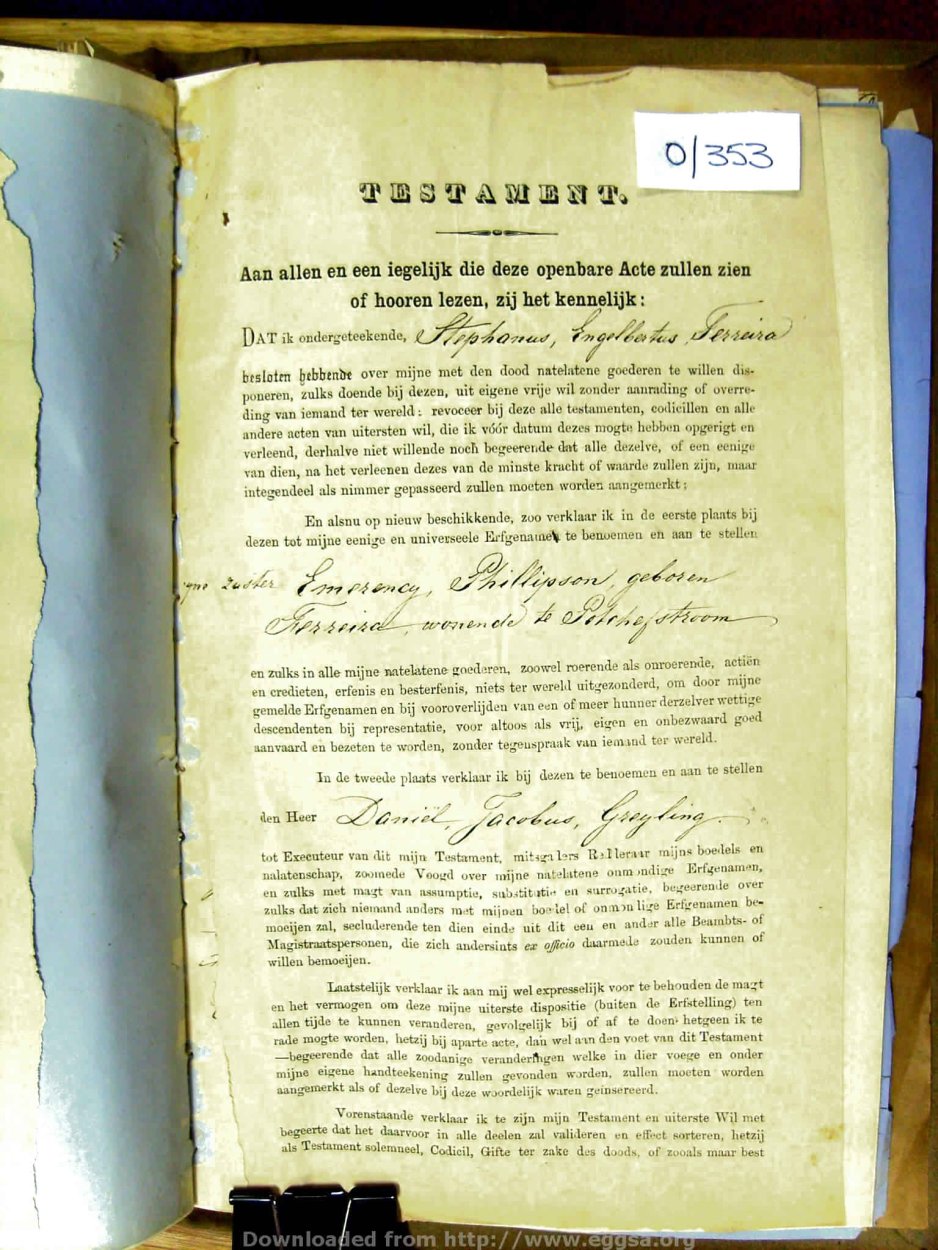 0/353
TESTAMENT.
Aan allen en een iegelijk die deze openbare Acte zullen zien
of hooren lezen, zij het kennelijk:
DAT ik ondergeteekende, Stephanus, Engelbertus, Ferreira
besloten hebbende over mijne met den dood natelatene goederen te willen dis-
poneren, zulks doende bij dezen, uit eigene vrije wil zonder aanrading of overre-
ding van iemand ter wereld: revoceer bij deze alle testamenten, codicillen en alle
andere acten van uitersten wil, die ik vóór datum dezes mogte hebben opgerigt en
verleend, derhalve niet willende noch begeerende dat alle dezelve, of een eenige
van dien, na het verleenen dezes van de minste kracht of waarde zullen zijn, maar
integendeel als nimmer gepasseerd zullen moeten worden aangemerkt;
En alsnu op nieuw beschikkende, zoo verklaar ik in de eerste plaats bij
dezen tot mijne eenige en universeele Erfgenamen te benoemen en aan te stellen
zuster Emerency, Phillipson, geboren
Ferreira, wonende te Potchefstroom
en zulks in alle mijne natelatene goederen, zoowel roerende als onroerende, actiën
en credieten, erfenis en besterfenis, niets ter wereld uitgezonderd, om door mijne
gemelde Erfgenamen en bij vooroverlijden van een of meer hunner derzelver wettige
descendenten bij representatie, voor altoos als vrij, eigen en onbezwaard goed
aanvaard en bezeten te worden, zonder tegenspraak van iemand ter wereld.
In de tweede plaats verklaar ik bij dezen te benoemen en aan te stellen
den Heer Daniël, Jacobus, Greyling.
tot Executeur van dit mijn Testament, mitsgaders Redderaar mijns boedels en
nalatenschap, zoomede Voogd over mijne natelatene onmondige Erfgenamen,
en zulks met magt van assumptie, substitutie en surrogatie, begeerende over
zulks dat zich niemand anders met mijnen boedel of onmondige Erfgenamen be-
moeijen zal, secluderende ten dien einde uit dit een en ander alle Beambts- of
Magistraatspersonen, die zich andersints ex officio daarmede zouden kunnen of
willen bemoeijen.
Laatstelijk verklaar ik aan mij wel expresselijk voor te behouden de magt
en het vermogen om deze mijne uiterste dispositie (buiten de Erfstelling) ten
allen tijde te kunnen veranderen, gevolgelijk bij of af te doen hetgeen ik te
rade mogte worden, hetzij bij aparte acte, dan wel aan den voet van dit Testament
—begeerende dat alle zoodanige veranderingen welke in dier voege en onder
mijne eigene handteekening zullen gevonden worden, zullen moeten worden
aangemerkt als of dezelve bij deze woordelijk waren geïnsereerd.
Vorenstaande verklaar ik te zijn mijn Testament en uiterste Wil met
begeerte dat het daarvoor in alle deelen zal valideren en effect sorteren, hetzij
als Testament solemneel, Codicil, Gifte ter zake des doods, of zooals maar best
Downloaded from http://www.eggsa.org